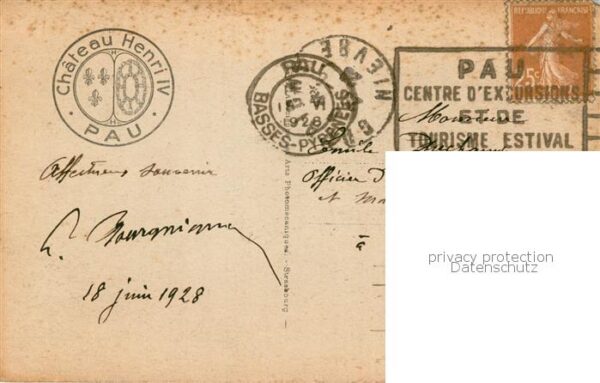 Château Henri IV
• PAU •
Affectueux souvenir
18 juin 1928
PAU
BASSES-PYRENEES
1928
NIEVRE
REPUBLIQUE FRANÇAISE
25c
PAU
CENTRE D'EXCURSIONS
ET DE
TOURISME ESTIVAL
Monsieur
Officier
et
à
Arts Photomécaniques - Strasbourg
privacy protection
Datenschutz